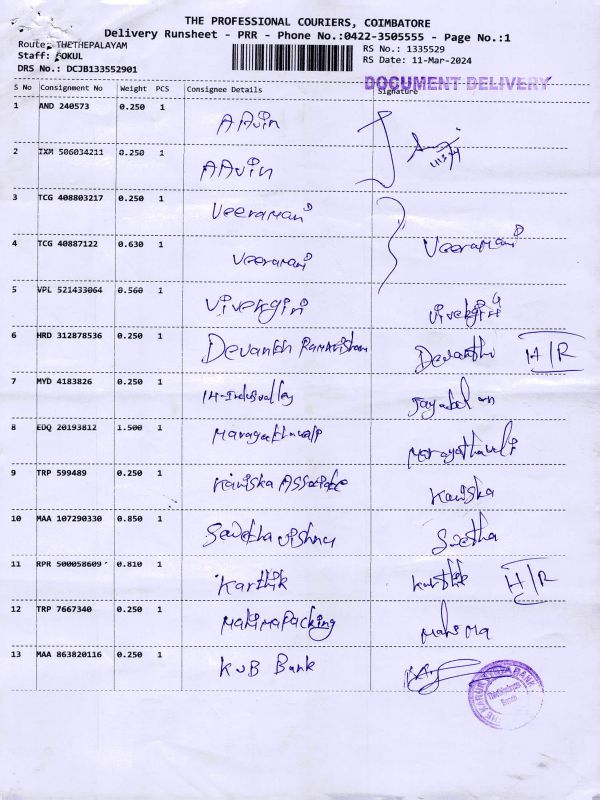 THE PROFESSIONAL COURIERS, COIMBATORE
Delivery Runsheet - PRR - Phone No.:0422-3505555 - Page No.:1
Route: THETHEPALAYAM
RS No.: 1335529
Staff: GOKUL
RS Date: 11-Mar-2024
DRS No.: DCJB133552901
DOCUMENT DELIVERY
S No Consignment No Weight PCS Consignee Details Signature
1 AND 240573 0.250 1 AAvin
2 IXM 506034211 0.250 1 AAvin
3 TCG 408803217 0.250 1 Veeramani
4 TCG 40887122 0.630 1 Veeramani Veeramani
5 VPL 521433064 0.560 1 Vivekgiri Vivekgiri
6 HRD 312878536 0.250 1 Devanth H/R
7 MYD 4183826 0.250 1
8 EDQ 20193812 1.500 1 Maragathavalli
9 TRP 599489 0.250 1 Kaniska Associate Kaniska
10 MAA 107290330 0.850 1 Vishnu
11 RPR 500058609 0.810 1 Karthik Karthik H/R
12 TRP 7667340 0.250 1 Mahima Packing Mahima
13 MAA 863820116 0.250 1 KVB Bank
THE KARUR VYSYA BANK
Branch